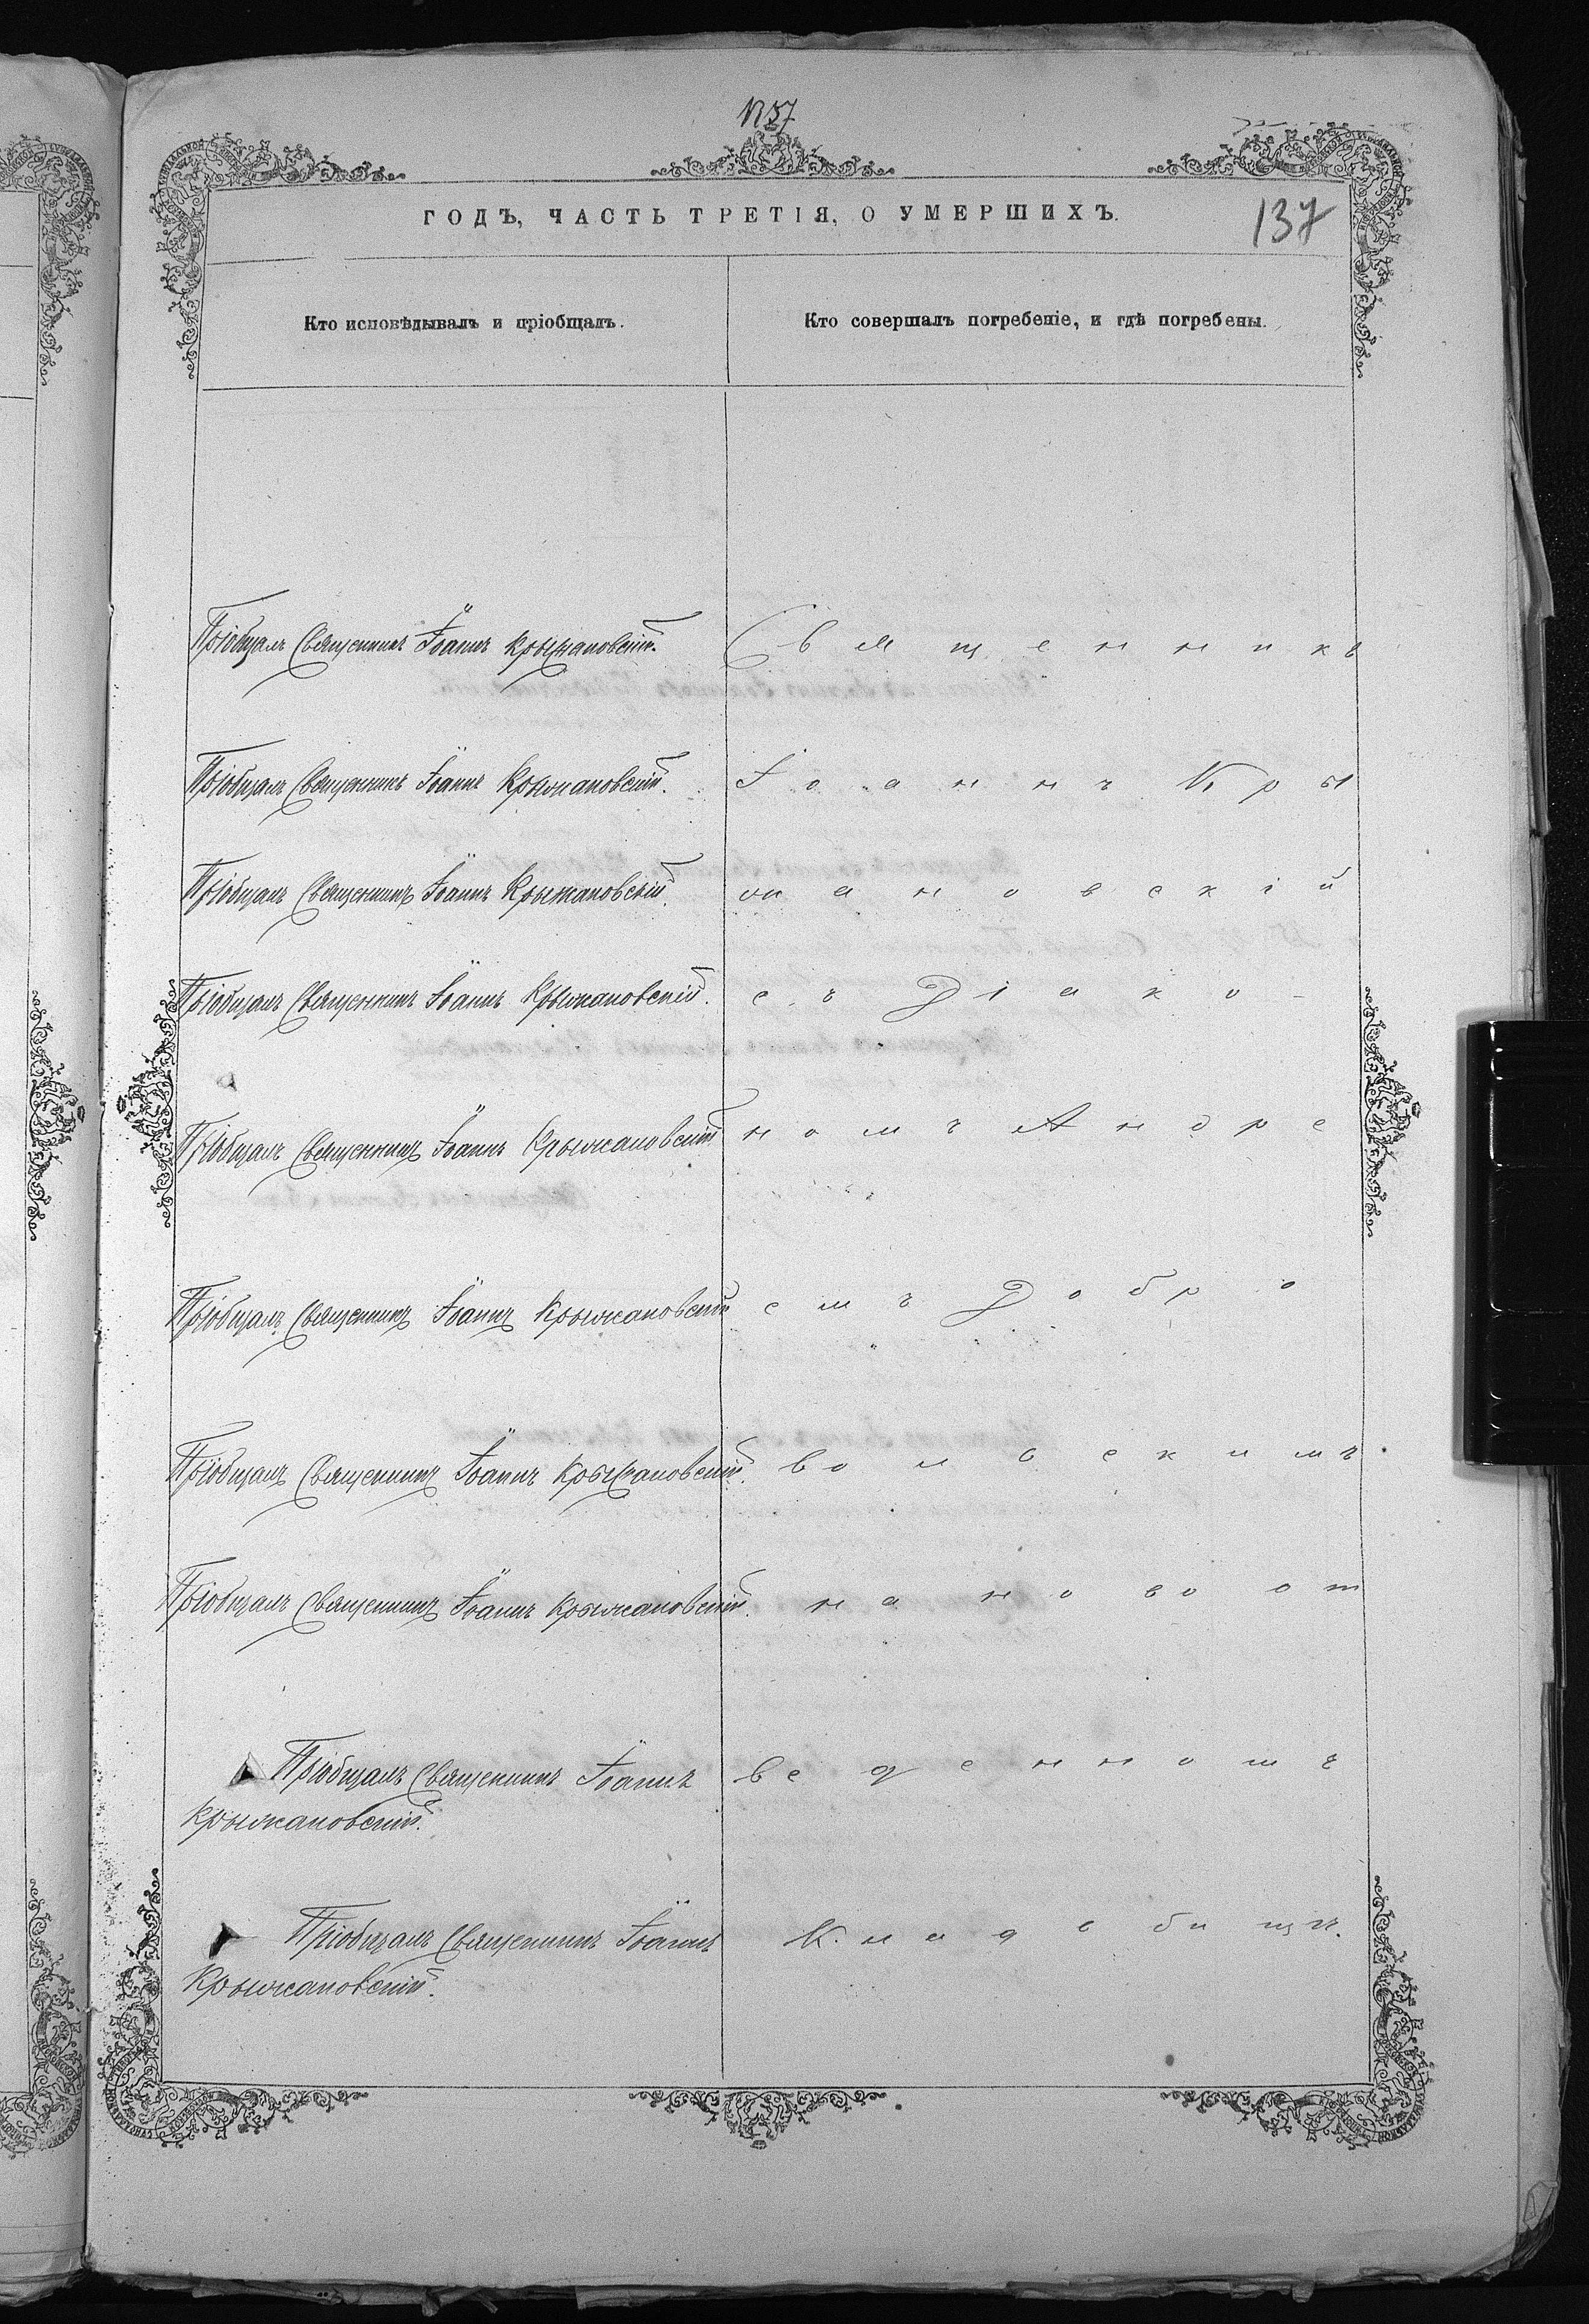 N 57
ГОДЪ, ЧАСТЬ ТРЕТІЯ, О УМЕРШИХЪ.
137
Кто исповѣдывалъ и пріобщалъ.
Кто совершалъ погребеніе, и гдѣ погребены.
Пріобщалъ Священникъ Іоаннъ Крыжановскій.
Священникъ
Пріобщалъ Священникъ Іоаннъ Крыжановскій.
Іоаннъ Кры
Пріобщалъ Священникъ Іоаннъ Крыжановскій.
жановскій
Пріобщалъ Священникъ Іоаннъ Крыжановскій.
съ Діако-
Пріобщалъ Священникъ Іоаннъ Крыжановскій
номъ Андре
Пріобщалъ Священникъ Іоаннъ Крыжановскій
емъ Добро
Пріобщалъ Священникъ Іоаннъ Крыжановскій.
вольскимъ
Пріобщалъ Священникъ Іоаннъ Крыжановскій.
на новоот
Пріобщалъ Священникъ Іоаннъ
Крыжановскій.
веденномъ
Пріобщалъ Священникъ Іоаннъ
Крыжановскій.
Кладбищѣ.